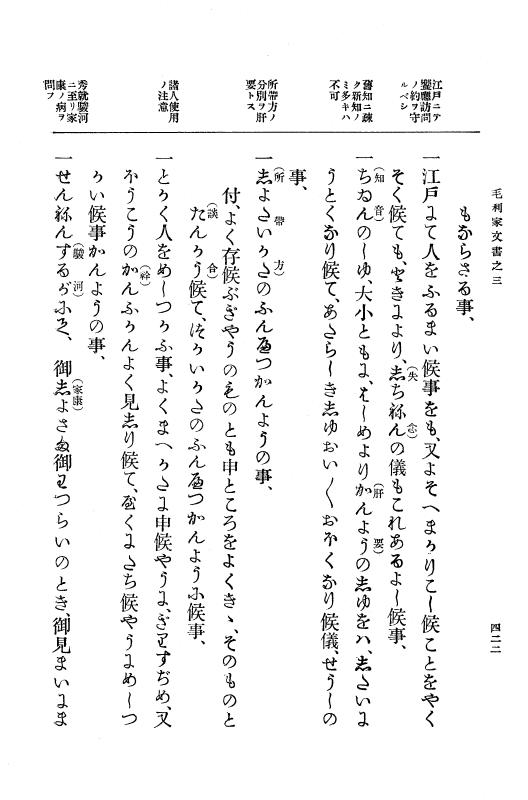 毛利家文書之三
四二二
もなからさる事、
江戸ニテ
饗應訪問
ノ約ヲ守
ルベシ
一江戸にて人をふるまい候事をも、又よそへまかりこし候ことをやく
そく候ても、ときにより、志ち(失)ねん(念)の儀もこれあるよし候事、
舊知ニ疎
ク新知ノ
ミ多キハ
不可
一ちゐん(知音)のしゆ、大小ともに、はしめよりかんよう(肝要)の志ゆをハ、志たいに
うとくなり候て、あたらしき志ゆおい〳〵おほくなり候儀、せうしの
事、
所帶方ノ
分別ヲ肝
要トス
一志よたいかた(所帶方)のふんへつかんようの事、
付、よく存候ぶぎやうのものとも申ところをよくきゝ、そのものと
たんかう(談合)候て、つかいかたのふんへつかんように候事、
諸人使用
ノ注意
一とかく人をめしつかふ事、よくまへかたに申候やうに、ぎりすぢめ、又
ほうこうのかん(幹)ふかんよく見志り候て、なくにたち候やうにめしつ
かい候事かんようの事、
秀就駿河
ニ至リ家
康ノ病ヲ
問フ
一せんねんするが(駿河)にて、御志よさま(家康)御わつらいのとき、御見まいにま